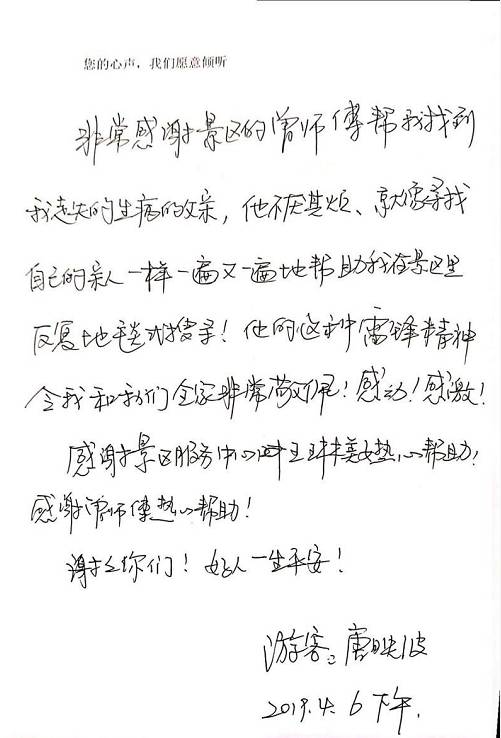 您的心声,我们愿意倾听
非常感谢景区的曾师傅帮我找到
我走失的生病的父亲,他不厌其烦、就像寻找
自己的亲人一样一遍又一遍地帮助我在景区里
反复地毯式搜寻!他的这种雷锋精神
令我和我们全家非常敬佩!感动!感激!
感谢景区服务中心叶王珠美女热心帮助!
感谢曾师傅热心帮助!
谢谢你们!好人一生平安!
游客:唐映波
2019.4.6下午.